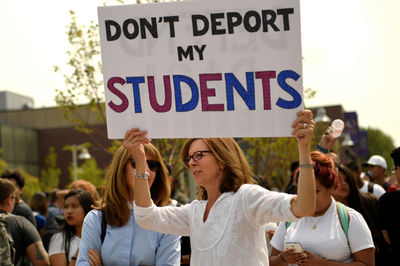 DON'T DEPORT
MY
STUDENTS